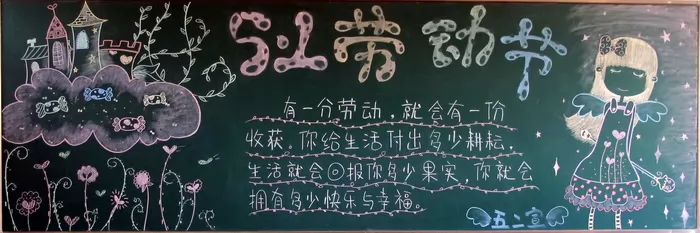 5·1 劳动节
有一分劳动,就会有一份
收获。你给生活付出多少耕耘,
生活就会回报你多少果实,你就会
拥有多少快乐与幸福。
五二宣